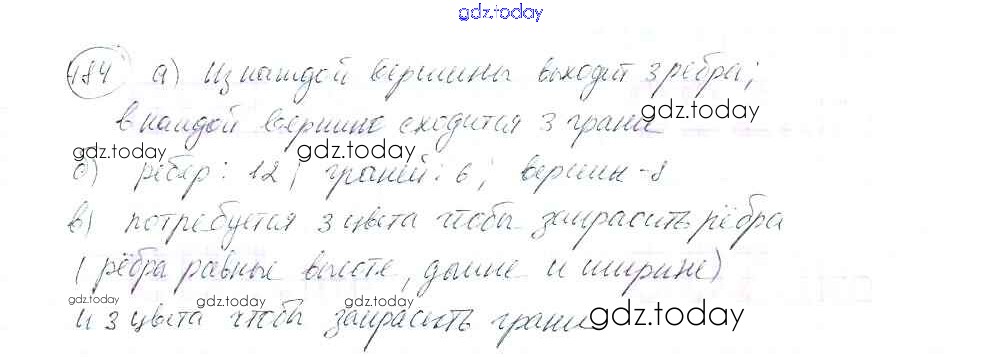 gdz.today
484 а) Из каждой вершины выходит 3 ребра;
в каждой вершине сходится 3 грани
gdz.today
gdz.today
gdz.today
б) рёбер: 12; граней: 6; вершин - 8
в) потребуется 3 цвета чтобы закрасить рёбра
(рёбра равные высоте, длине и ширине)
gdz.today gdz.today gdz.today
и 3 цвета чтобы закрасить грани
gdz.today